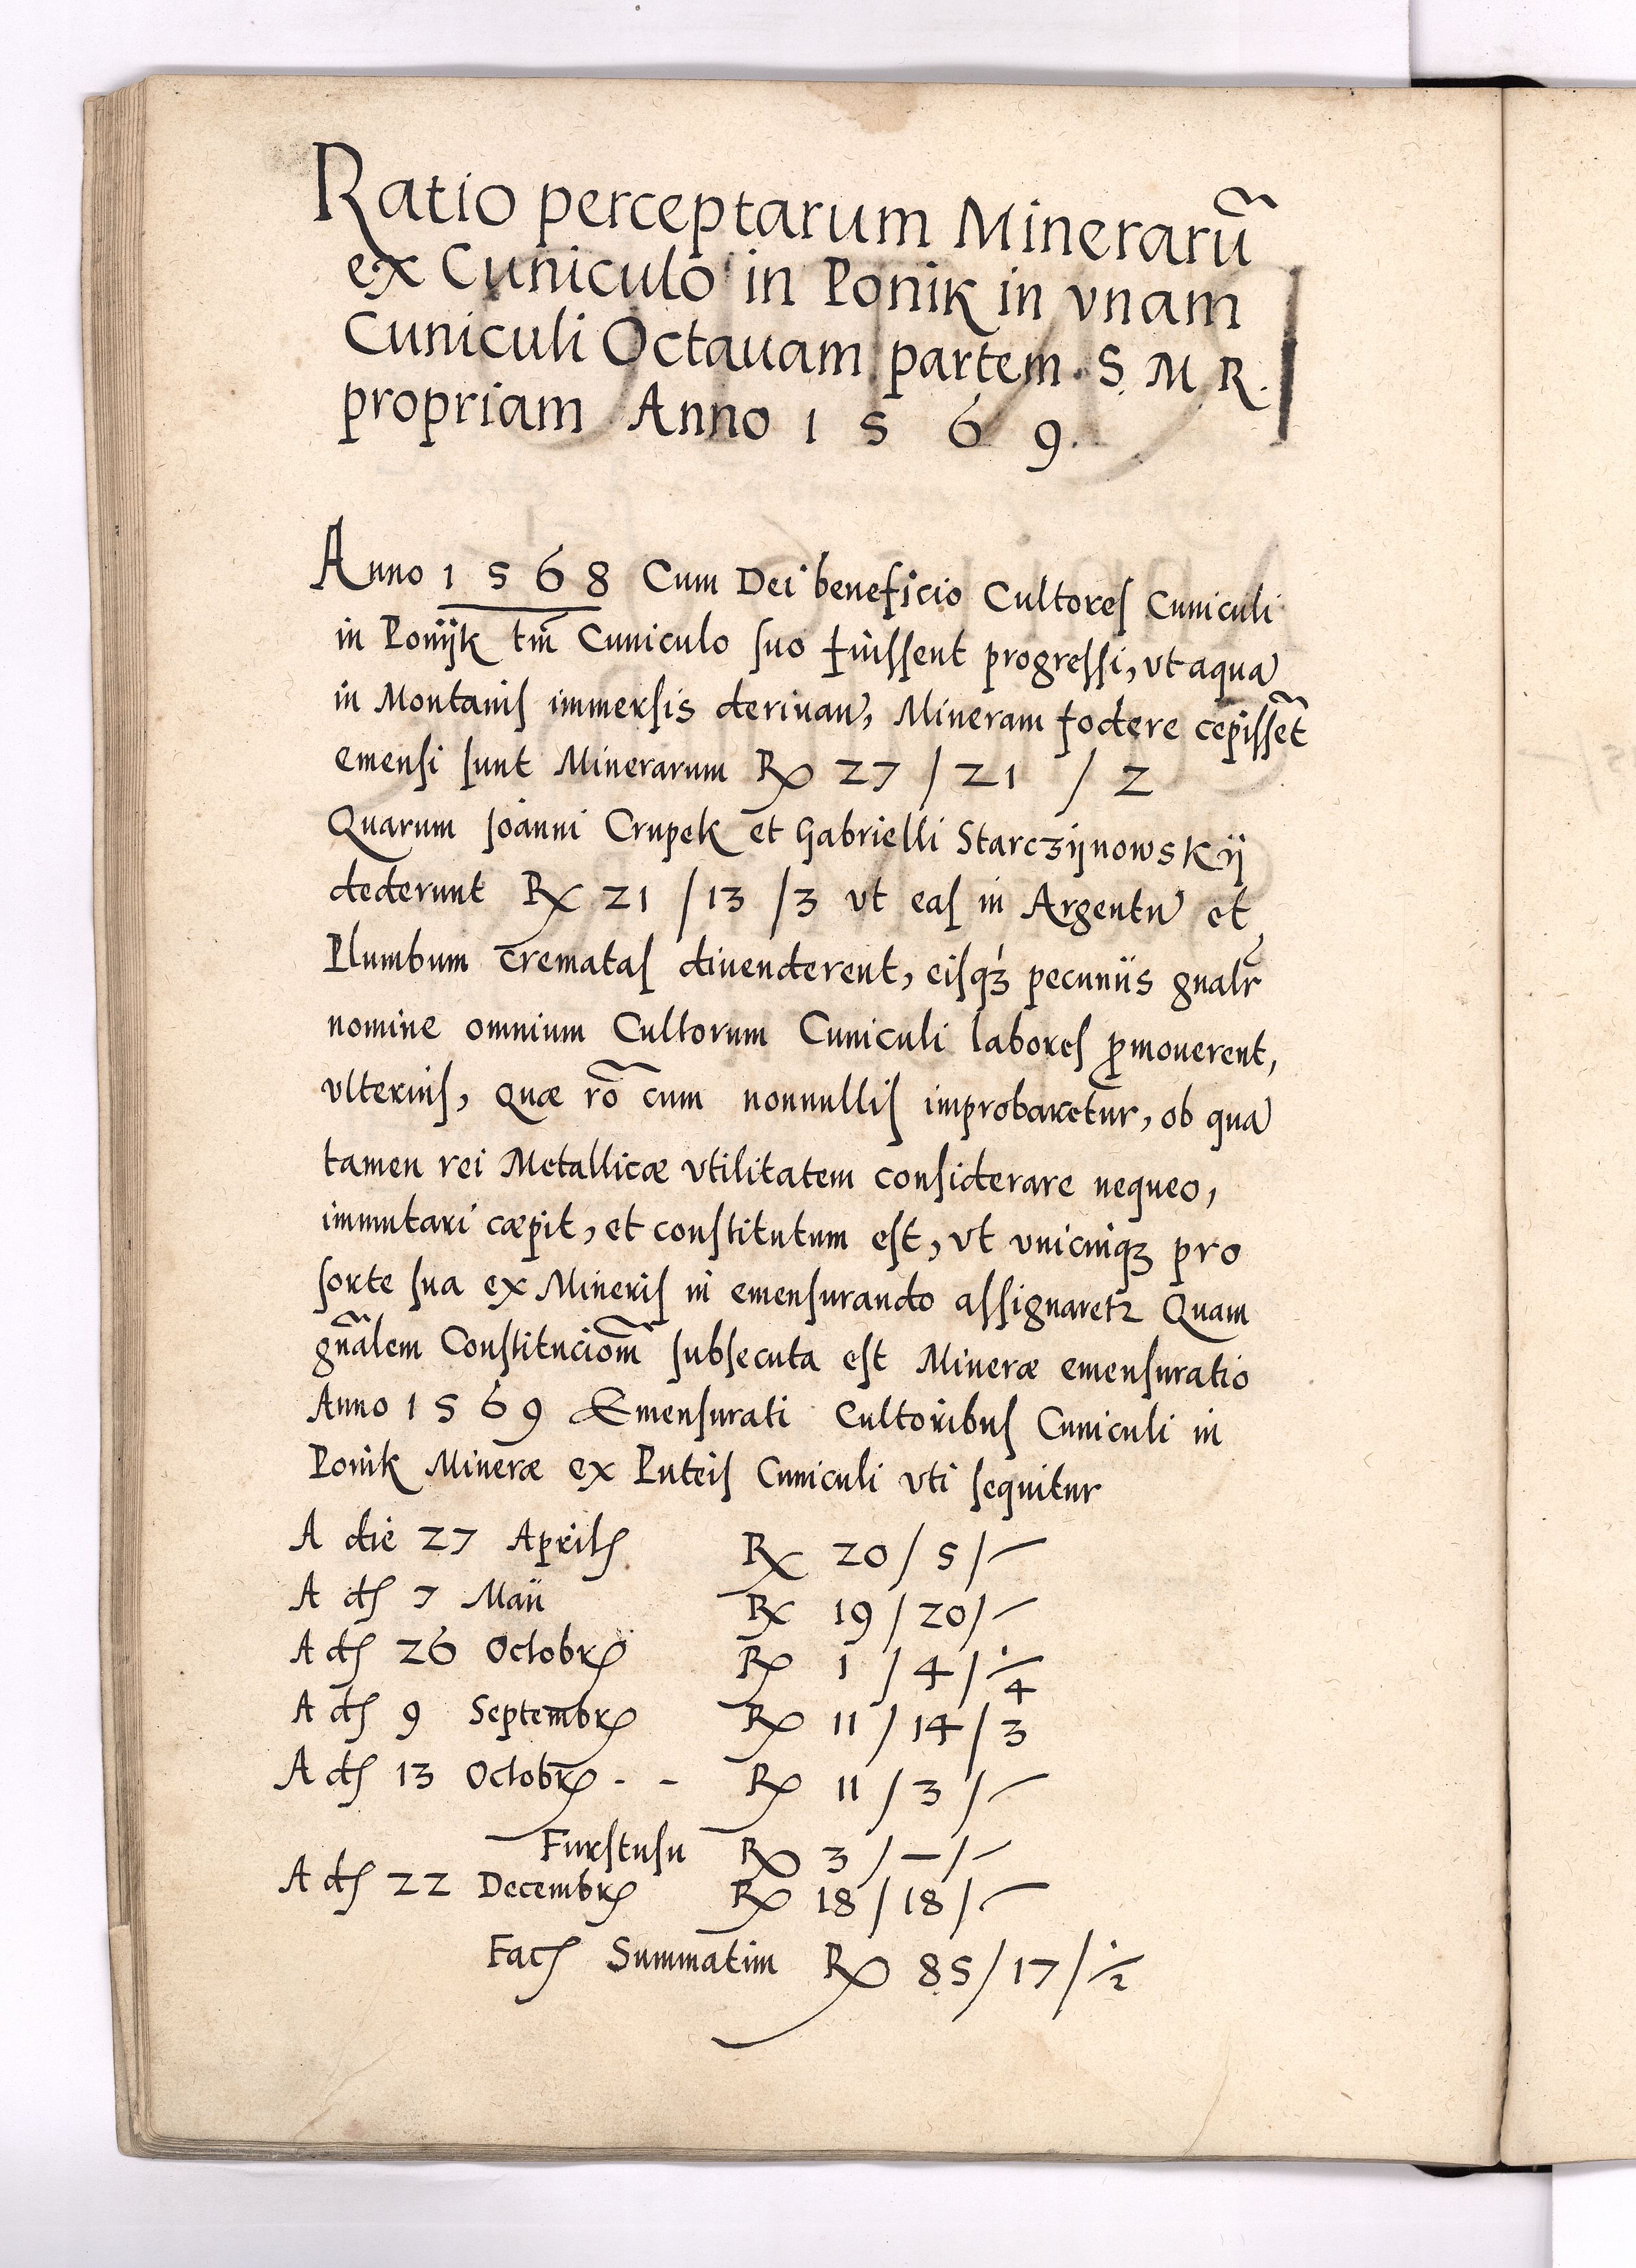 Ratio perceptarum Minerarũ
ex Cuniculo in Ponik in vnam
Cuniculi Octauam partem. S. M. R.
propriam Anno 1569.
Anno 1568 Cum Dei beneficio Cultores Cuniculi
in Ponijk tm̃ Cuniculo suo fuissent progressi, vt aquã
in Montanis immersis deriuarẽ, Mineram fodere cepissẽt
emensi sunt Minerarum R 27 / 21 / 2
Quarum Joanni Crupek et Gabrielli Starczijnowskij
dederunt R 21 / 13 / 3 vt eas in Argentũ et
Plumbum crematas diuenderent, eisqȝ pecuniis gnalr̃
nomine omnium Cultorum Cuniculi labores ꝓmouerent,
vlterius, quæ rõ cum nonnullis improbaretur, ob quã
tamen rei Metallicæ vtilitatem considerare nequeo,
immutari cæpit, et constitutum est, vt vnicuiqȝ pro
sorte sua ex Mineris in emensurando assignaretꝛ Quam
gñalem Constituciom̃ subsecuta est Mineræ emensuratio
Anno 1569 Emensurati Cultoribus Cuniculi in
Ponik Mineræ ex Puteis Cuniculi vti sequitur
A die 27 Aprilꝭ R 20 / 5 / –
A dꝭ 7 Maii R 19 / 20 / –
A dꝭ 26 Octobrꝭ R 1 / 4 / ¼
A dꝭ 9 Septembrꝭ R 11 / 14 / 3
A dꝭ 13 Octobrꝭ - - R 11 / 3 / –
Furstusu R 3 / – / –
A dꝭ 22 Decembrꝭ R 18 / 18 / –
Facꝭ Summatim R 85 / 17 / ½